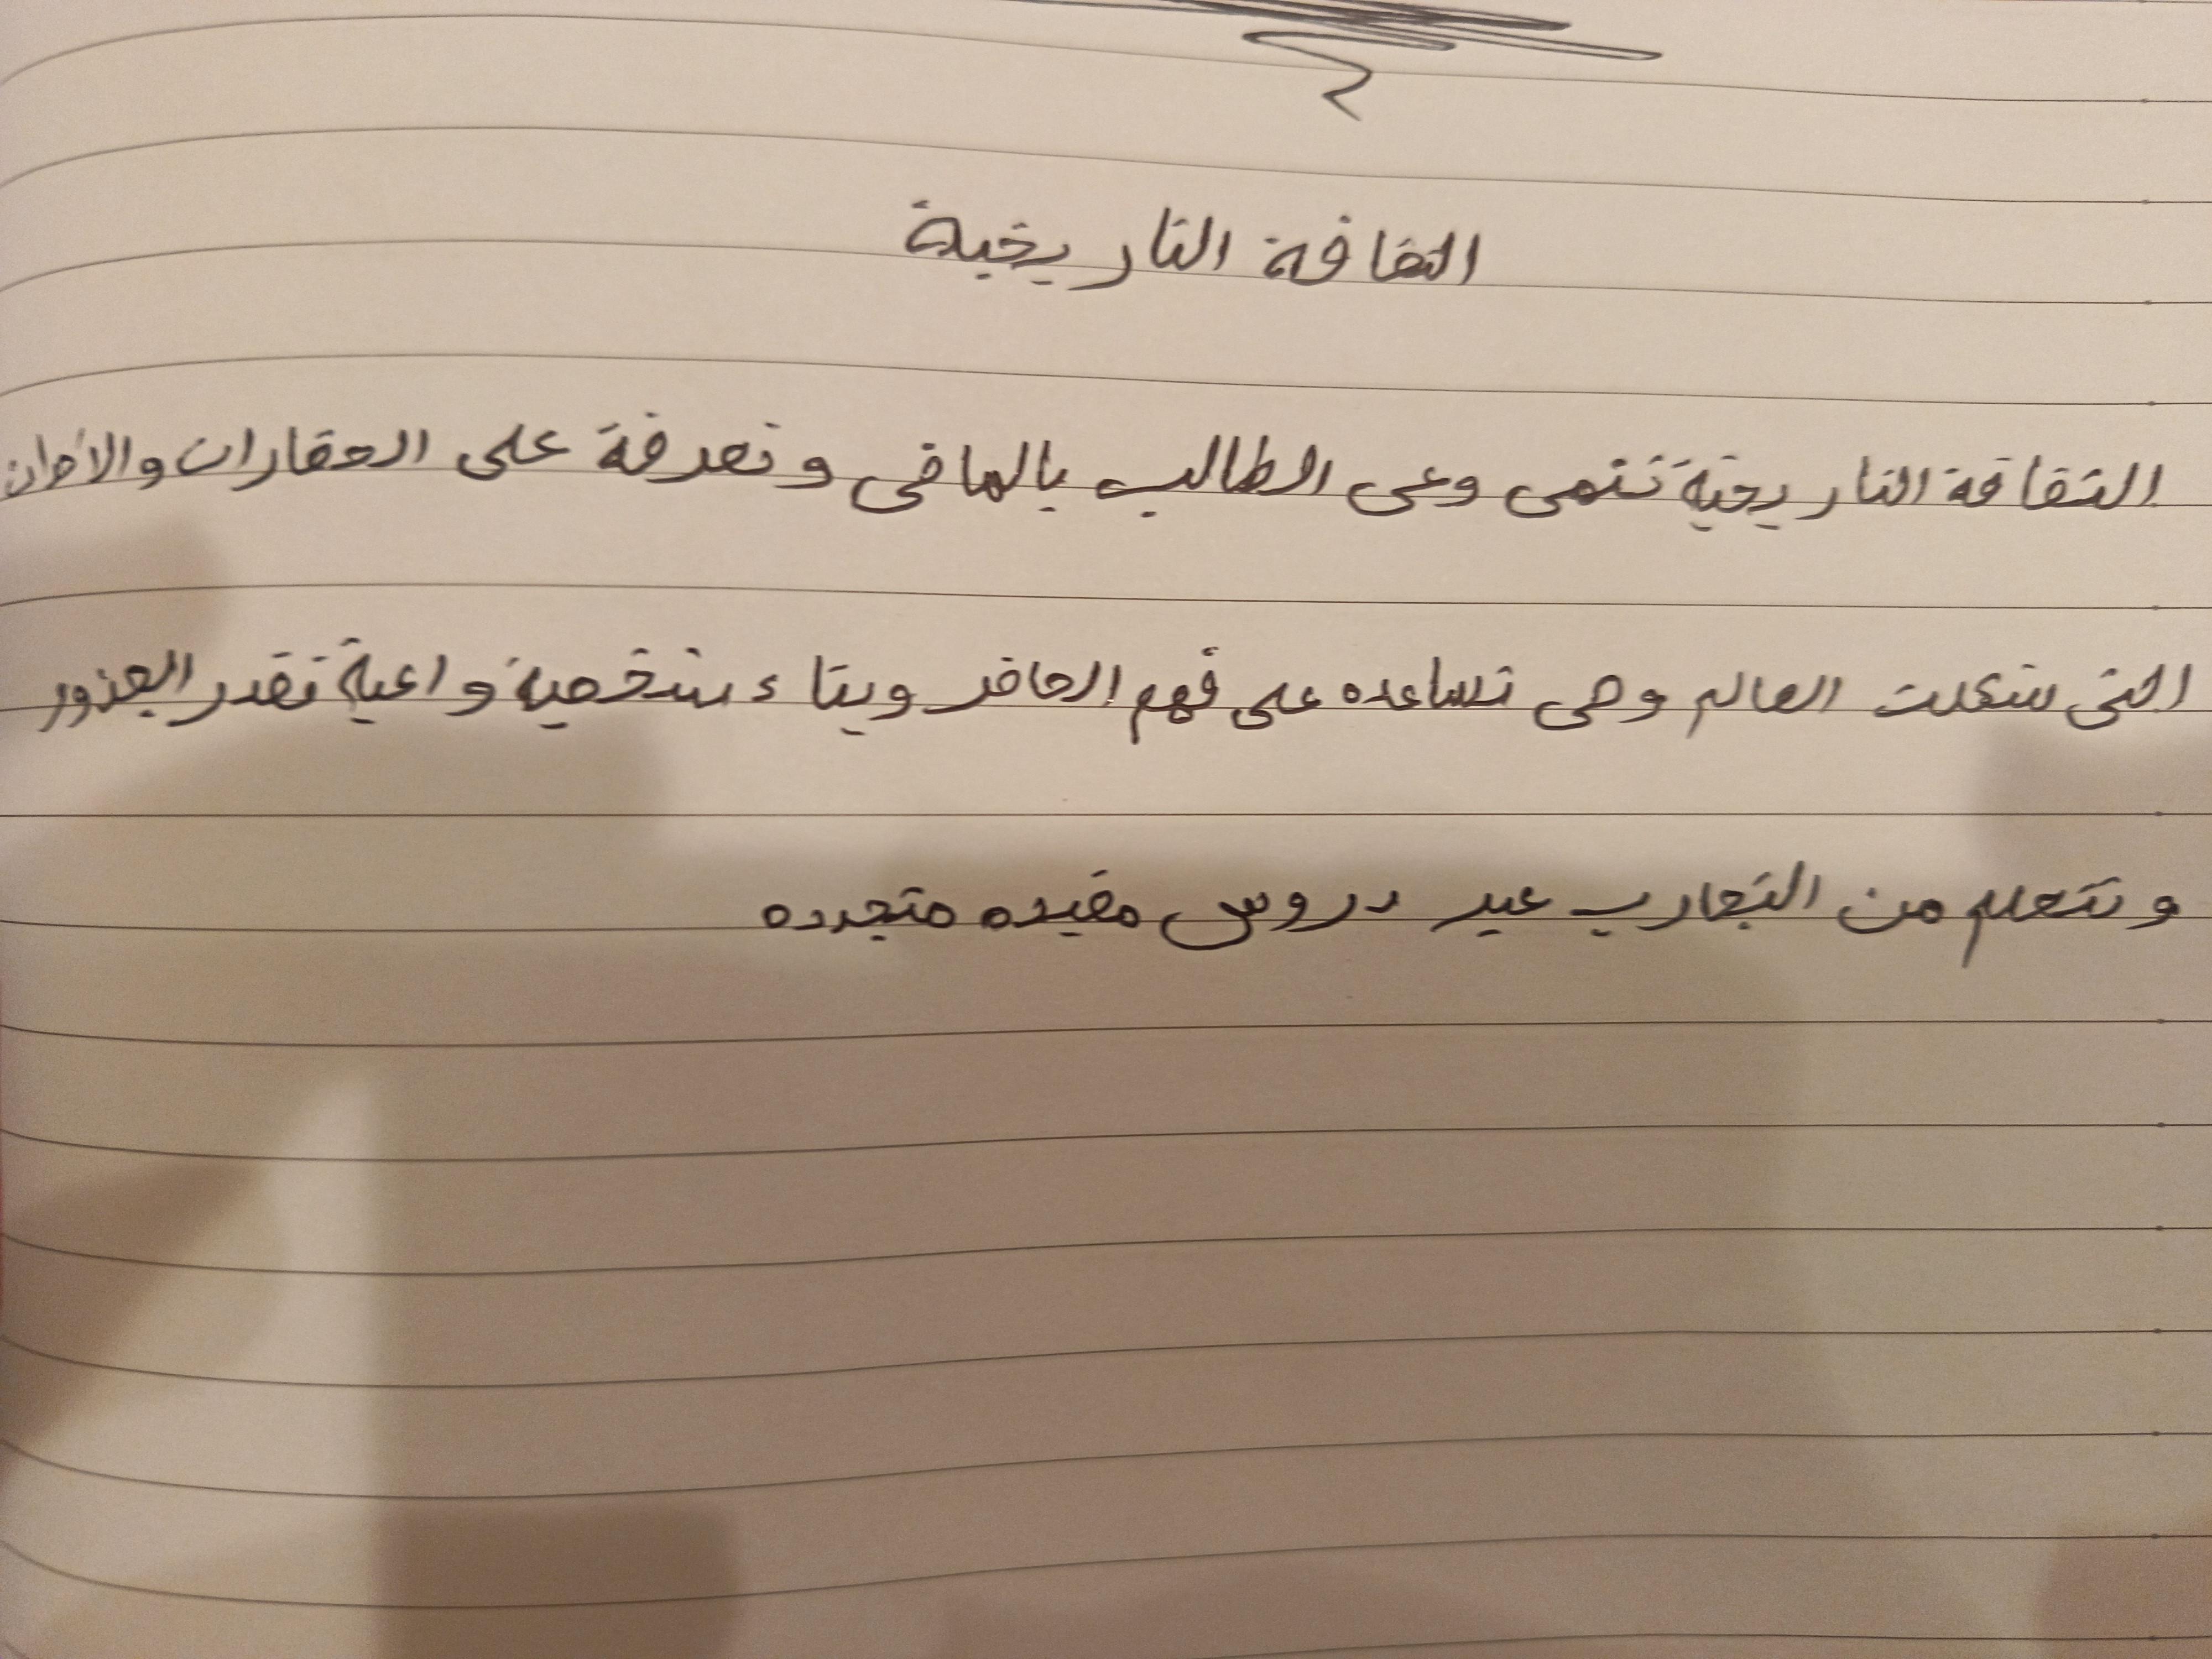 الثقافة التاريخية
الثقافة التاريخية تنمى وعى الطالب بالماضى و تعرفة على العقارات والأحداث
التى شكلت العالم وهى تساعده على فهم الحاضر وبناء شخصية واعية تقدر الجذور
و تتعلم من التجارب عبر دروس مفيده متجدده